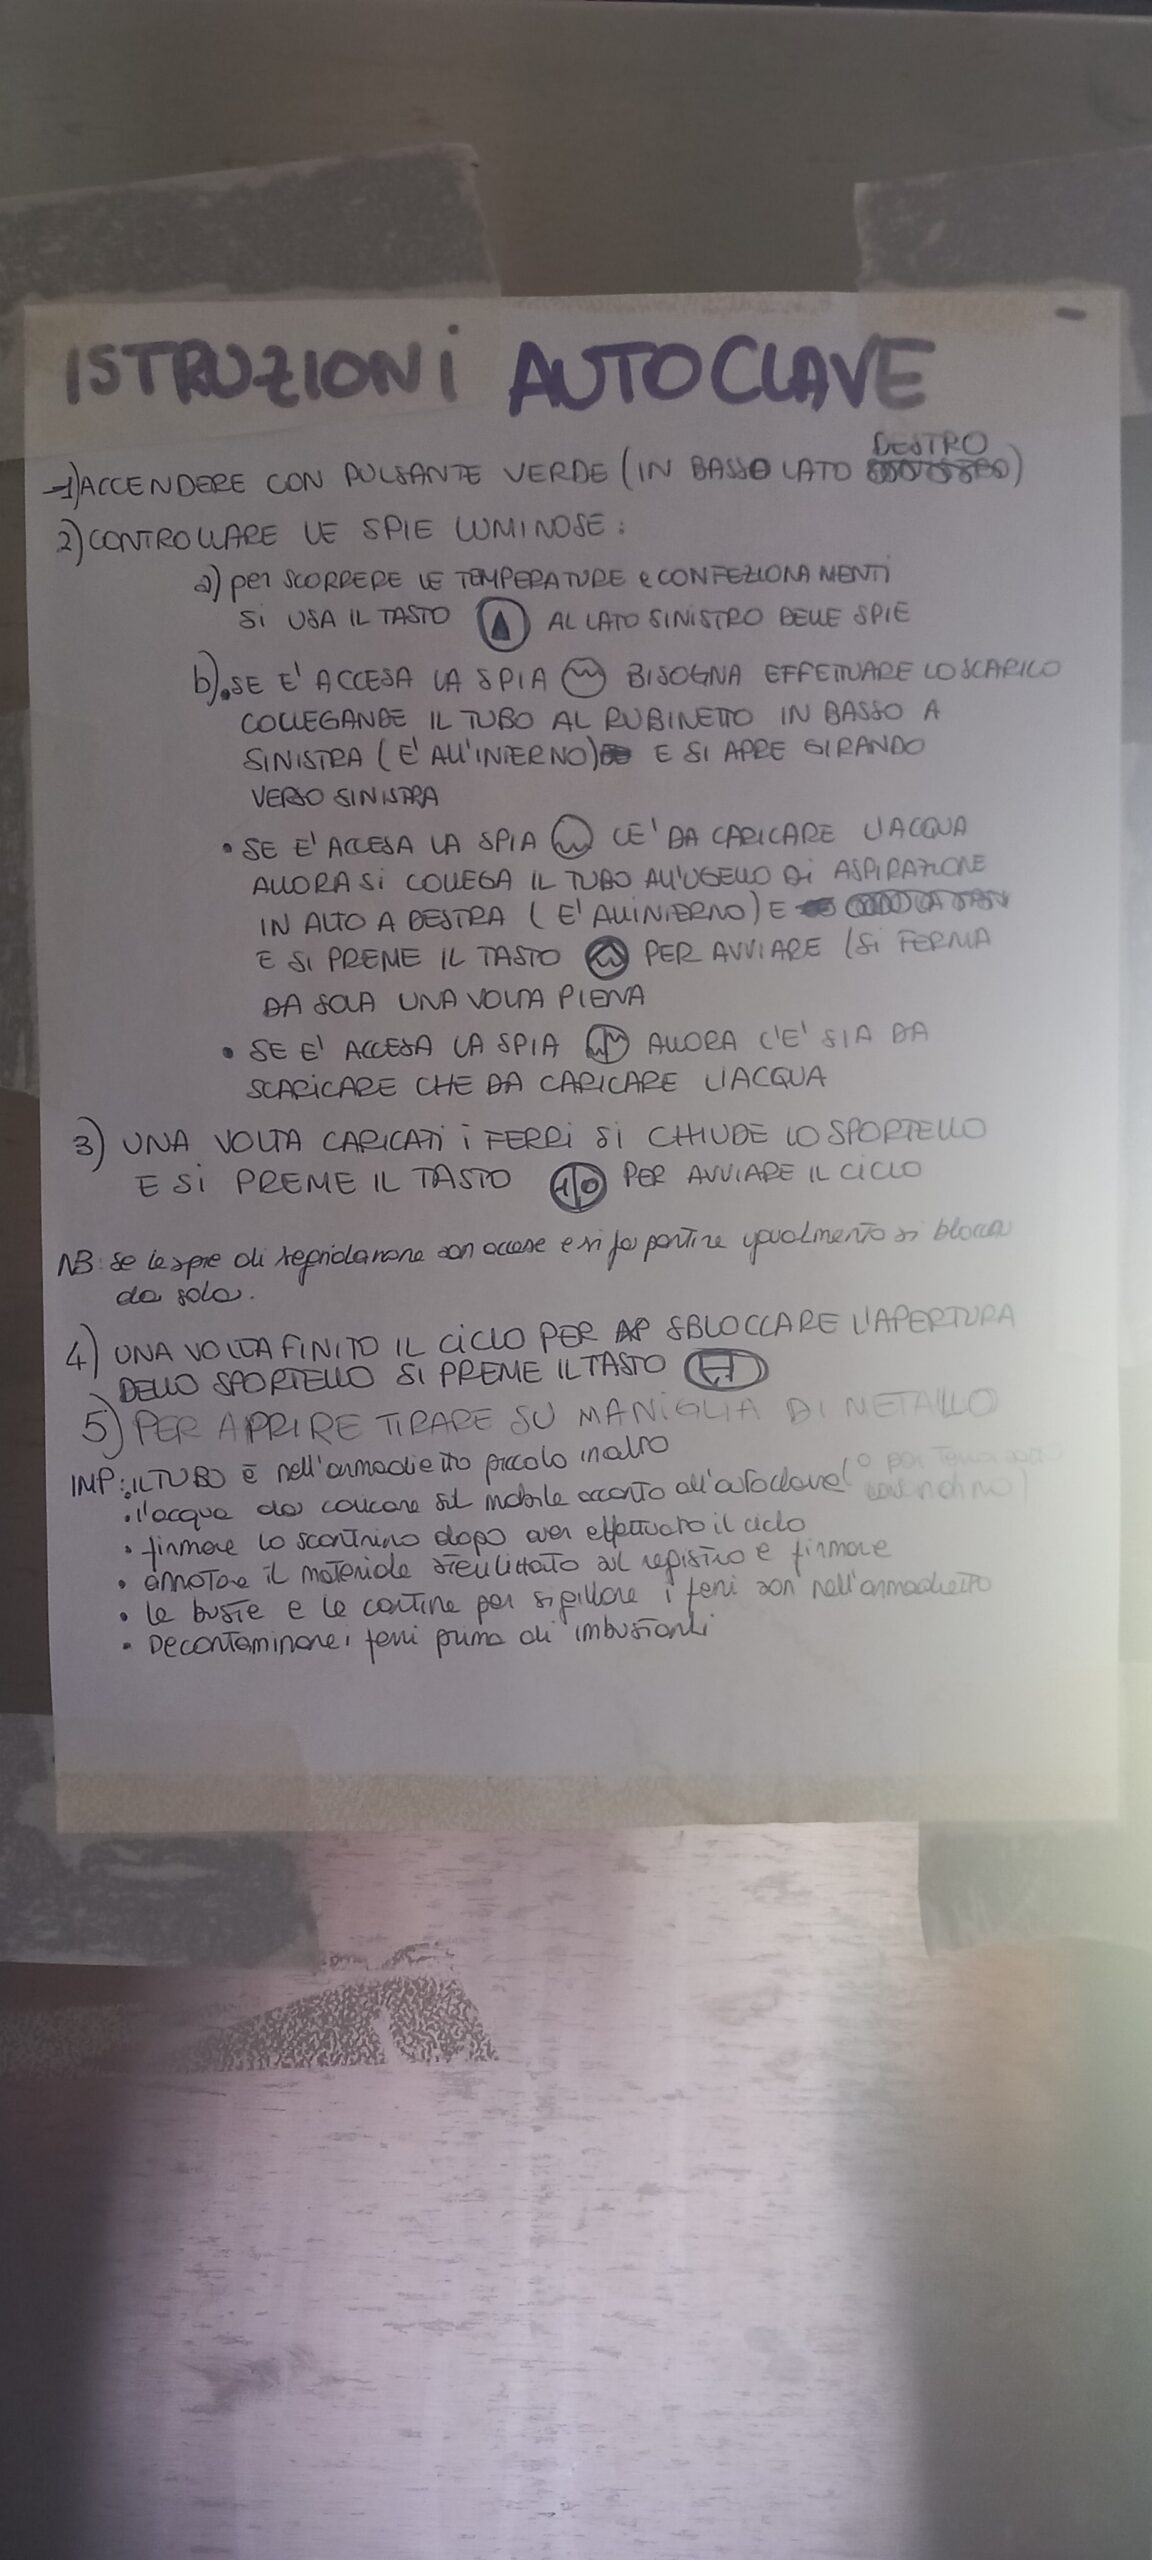 ISTRUZIONI AUTOCLAVE
DESTRO
1) ACCENDERE CON PULSANTE VERDE (IN BASSO LATO )
2) CONTROLLARE LE SPIE LUMINOSE:
a) per SCORRERE LE TEMPERATURE e CONFEZIONAMENTI
SI USA IL TASTO AL LATO SINISTRO DELLE SPIE
b) • SE E' ACCESA LA SPIA BISOGNA EFFETTUARE LO SCARICO
COLLEGANDE IL TUBO AL RUBINETTO IN BASSO A
SINISTRA (E' ALL'INTERNO) E SI APRE GIRANDO
VERSO SINISTRA
• SE E' ACCESA LA SPIA C'E' DA CARICARE L'ACQUA
ALLORA SI COLLEGA IL TUBO ALL'UGELLO DI ASPIRAZIONE
IN ALTO A DESTRA (E' ALL'INTERNO) E
E SI PREME IL TASTO PER AVVIARE (SI FERMA
DA SOLA UNA VOLTA PIENA
• SE E' ACCESA LA SPIA ALLORA C'E' SIA DA
SCARICARE CHE DA CARICARE L'ACQUA
3) UNA VOLTA CARICATI I FERRI SI CHIUDE LO SPORTELLO
E SI PREME IL TASTO 1/0 PER AVVIARE IL CICLO
NB: se le spie di son accese e si fa partire ugualmente si blocca
da sola.
4) UNA VOLTA FINITO IL CICLO PER SBLOCCARE L'APERTURA
DELLO SPORTELLO SI PREME IL TASTO
5) PER APRIRE TIRARE SU MANIGLIA DI METALLO
IMP: IL TUBO è nell'armadietto piccolo in alto
• l'acqua da caricare sul mobile accanto all'autoclave (o per terra
• firmare lo scontrino dopo aver effettuato il ciclo
• annotare il materiale sterilizzato sul registro e firmare
• le buste e le cartine per sigillare i ferri son nell'armadietto
• Decontaminare i ferri prima di imbustarli